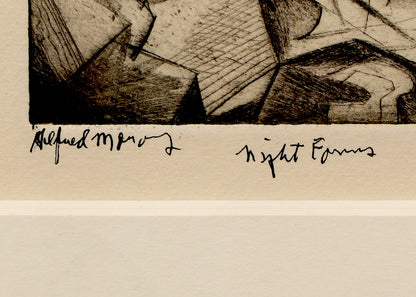 Alfred Morang Night Forms